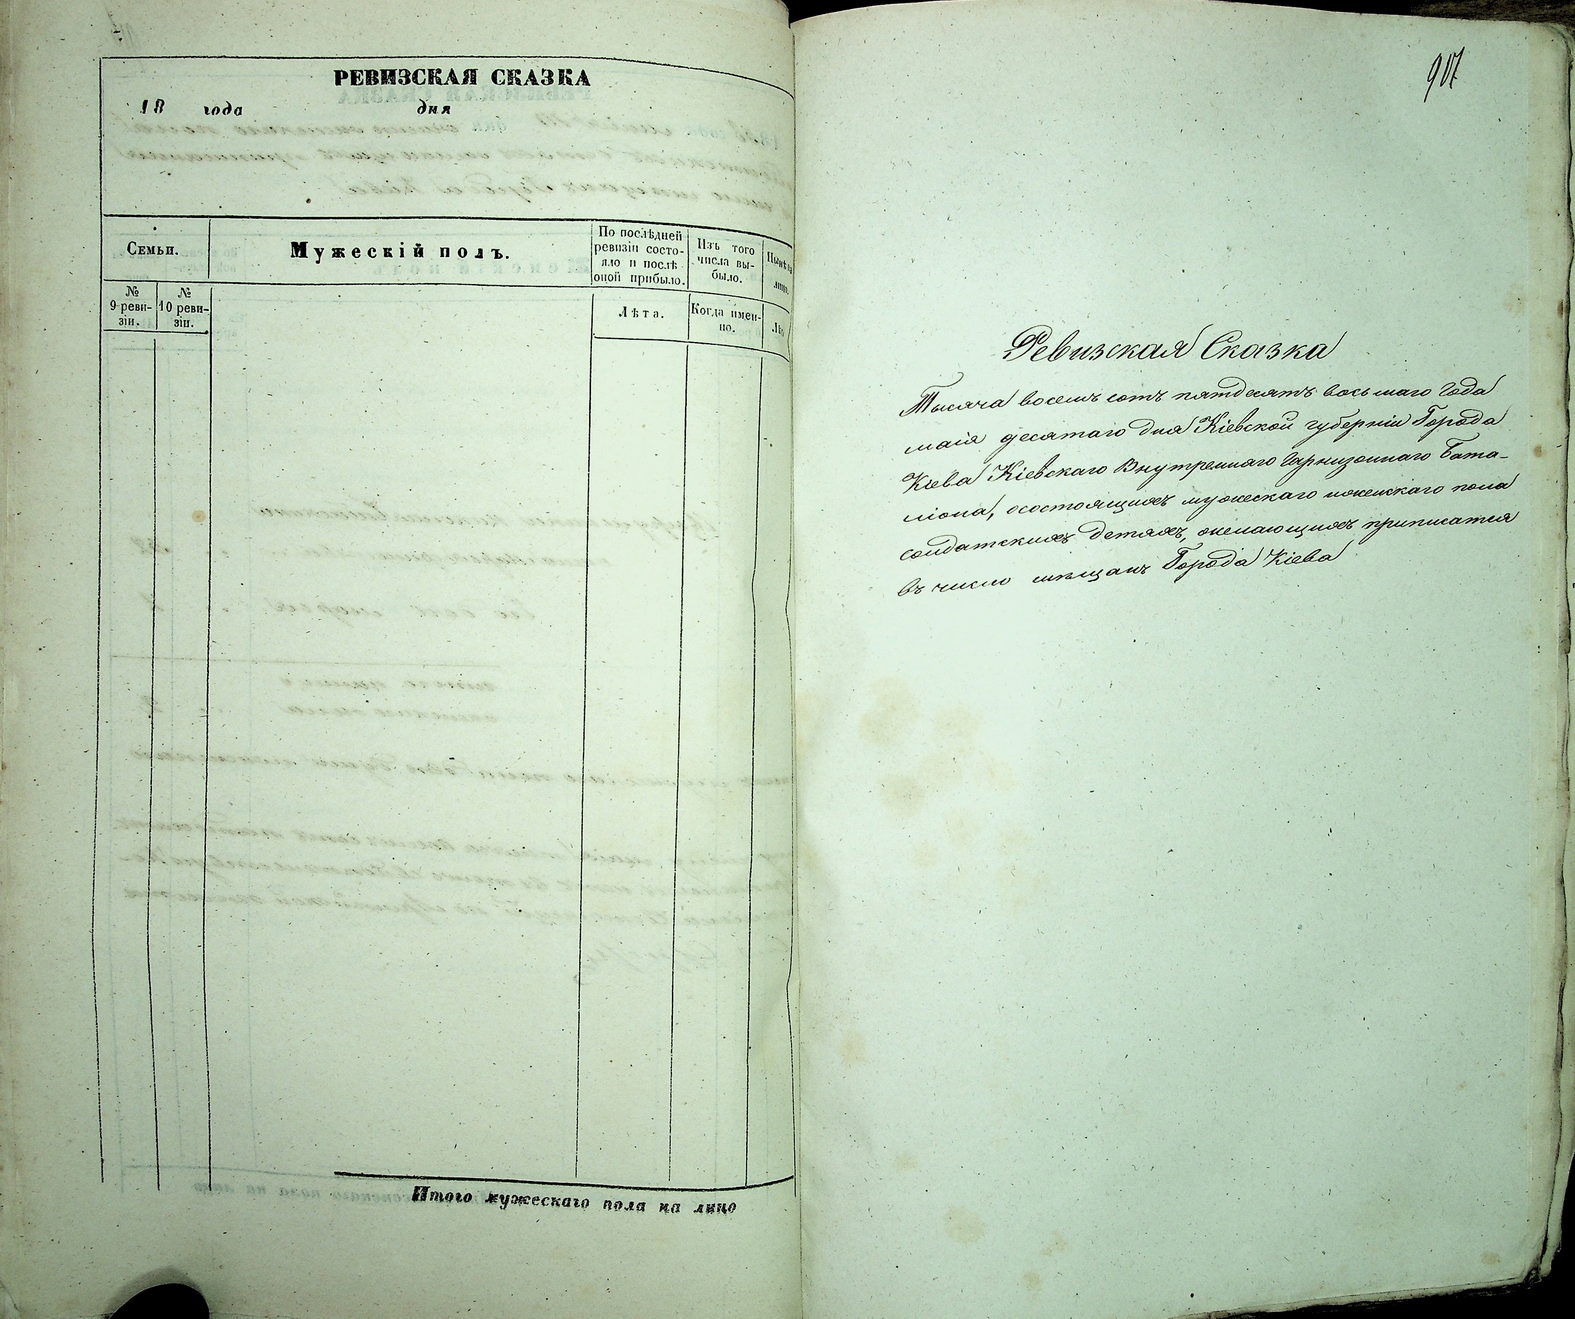 РЕВИЗСКАЯ СКАЗКА
18 года дня
Семьи.
Мужескій полъ.
По послѣдней
ревизіи состо-
яло и послѣ
оной прибыло.
Изъ того
числа вы-
было.
№
9 реви-
зіи.
№
10 реви-
зіи.
Лѣта.
Когда имен-
но.
Итого мужескаго пола на лицо
907
Ревизская Сказка
Тысяча восемь сотъ пятдесятъ восьмаго года
маія десятаго дня Кіевской губерніи Города
Кіева Кіевскаго Внутренняго Гарнизоннаго Бата-
ліона, осостоящихъ мужескаго иженскаго пола
солдатскихъ детяхъ, желающихъ приписатся
въ число мѣщанъ Города Кіева